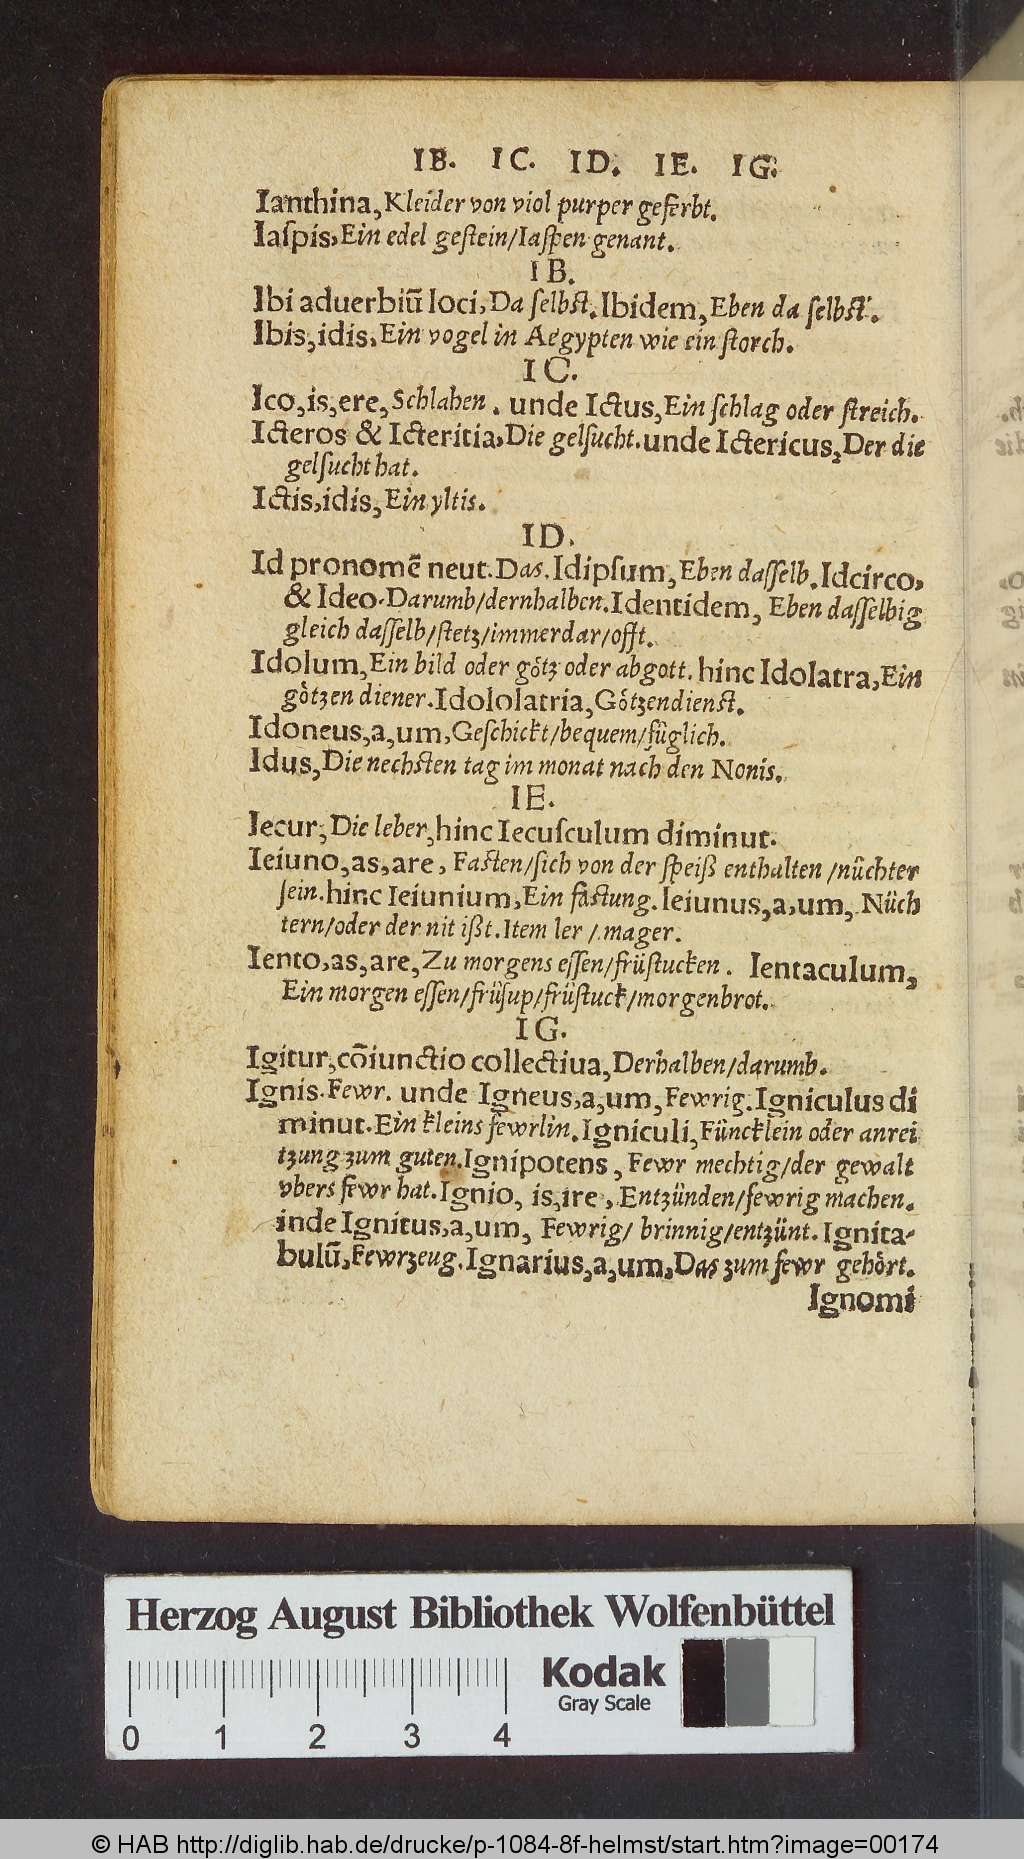 IB. IC. ID. IE. IG.
Ianthina, Kleider von viol purper geferbt.
Iaſpis, Ein edel geſtein/Iaſpen genant.
IB.
Ibi aduerbiū loci, Da ſelbſt. Ibidem, Eben da ſelbſt.
Ibis, idis, Ein vogel in Aegypten wie ein ſtorch.
IC.
Ico, is, ere, Schlahen. unde Ictus, Ein ſchlag oder ſtreich.
Icteros & Icteritia, Die gelſucht. unde Ictericus, Der die
gelſucht hat.
Ictis, idis, Ein yltis.
ID.
Id pronomē neut. Das. Idipſum, Eben daſſelb. Idcirco,
& Ideo. Darumb/dernhalben. Identidem, Eben daſſelbig
gleich daſſelb/ſtetz/immerdar/offt.
Idolum, Ein bild oder götz oder abgott. hinc Idolatra, Ein
götzen diener. Idololatria, Götzendienſt.
Idoneus, a, um, Geſchickt/bequem/füglich.
Idus, Die nechſten tag im monat nach den Nonis.
IE.
Iecur, Die leber, hinc Iecuſculum diminut.
Ieiuno, as, are, Faſten/ſich von der ſpeiß enthalten/nüchter
ſein. hinc Ieiunium, Ein faſtung. Ieiunus, a, um, Nüch
tern/oder der nit ißt. Item ler/mager.
Iento, as, are, Zu morgens eſſen/früſtucken. Ientaculum,
Ein morgen eſſen/früſup/früſtuck/morgenbrot.
IG.
Igitur, cōiunctio collectiua, Derhalben/darumb.
Ignis. Fewr. unde Igneus, a, um, Fewrig. Igniculus di
minut. Ein kleins fewrlin. Igniculi, Füncklein oder anrei
tzung zum guten. Ignipotens, Fewr mechtig/der gewalt
vbers fewr hat. Ignio, is, ire, Entzünden/fewrig machen.
inde Ignitus, a, um, Fewrig/ brinnig/entzünt. Ignita-
bulū, Fewrzeug. Ignarius, a, um, Das zum fewr gehört.
Ignomi
Herzog August Bibliothek Wolfenbüttel
Kodak
Gray Scale
0 1 2 3 4
© HAB http://diglib.hab.de/drucke/p-1084-8f-helmst/start.htm?image=00174